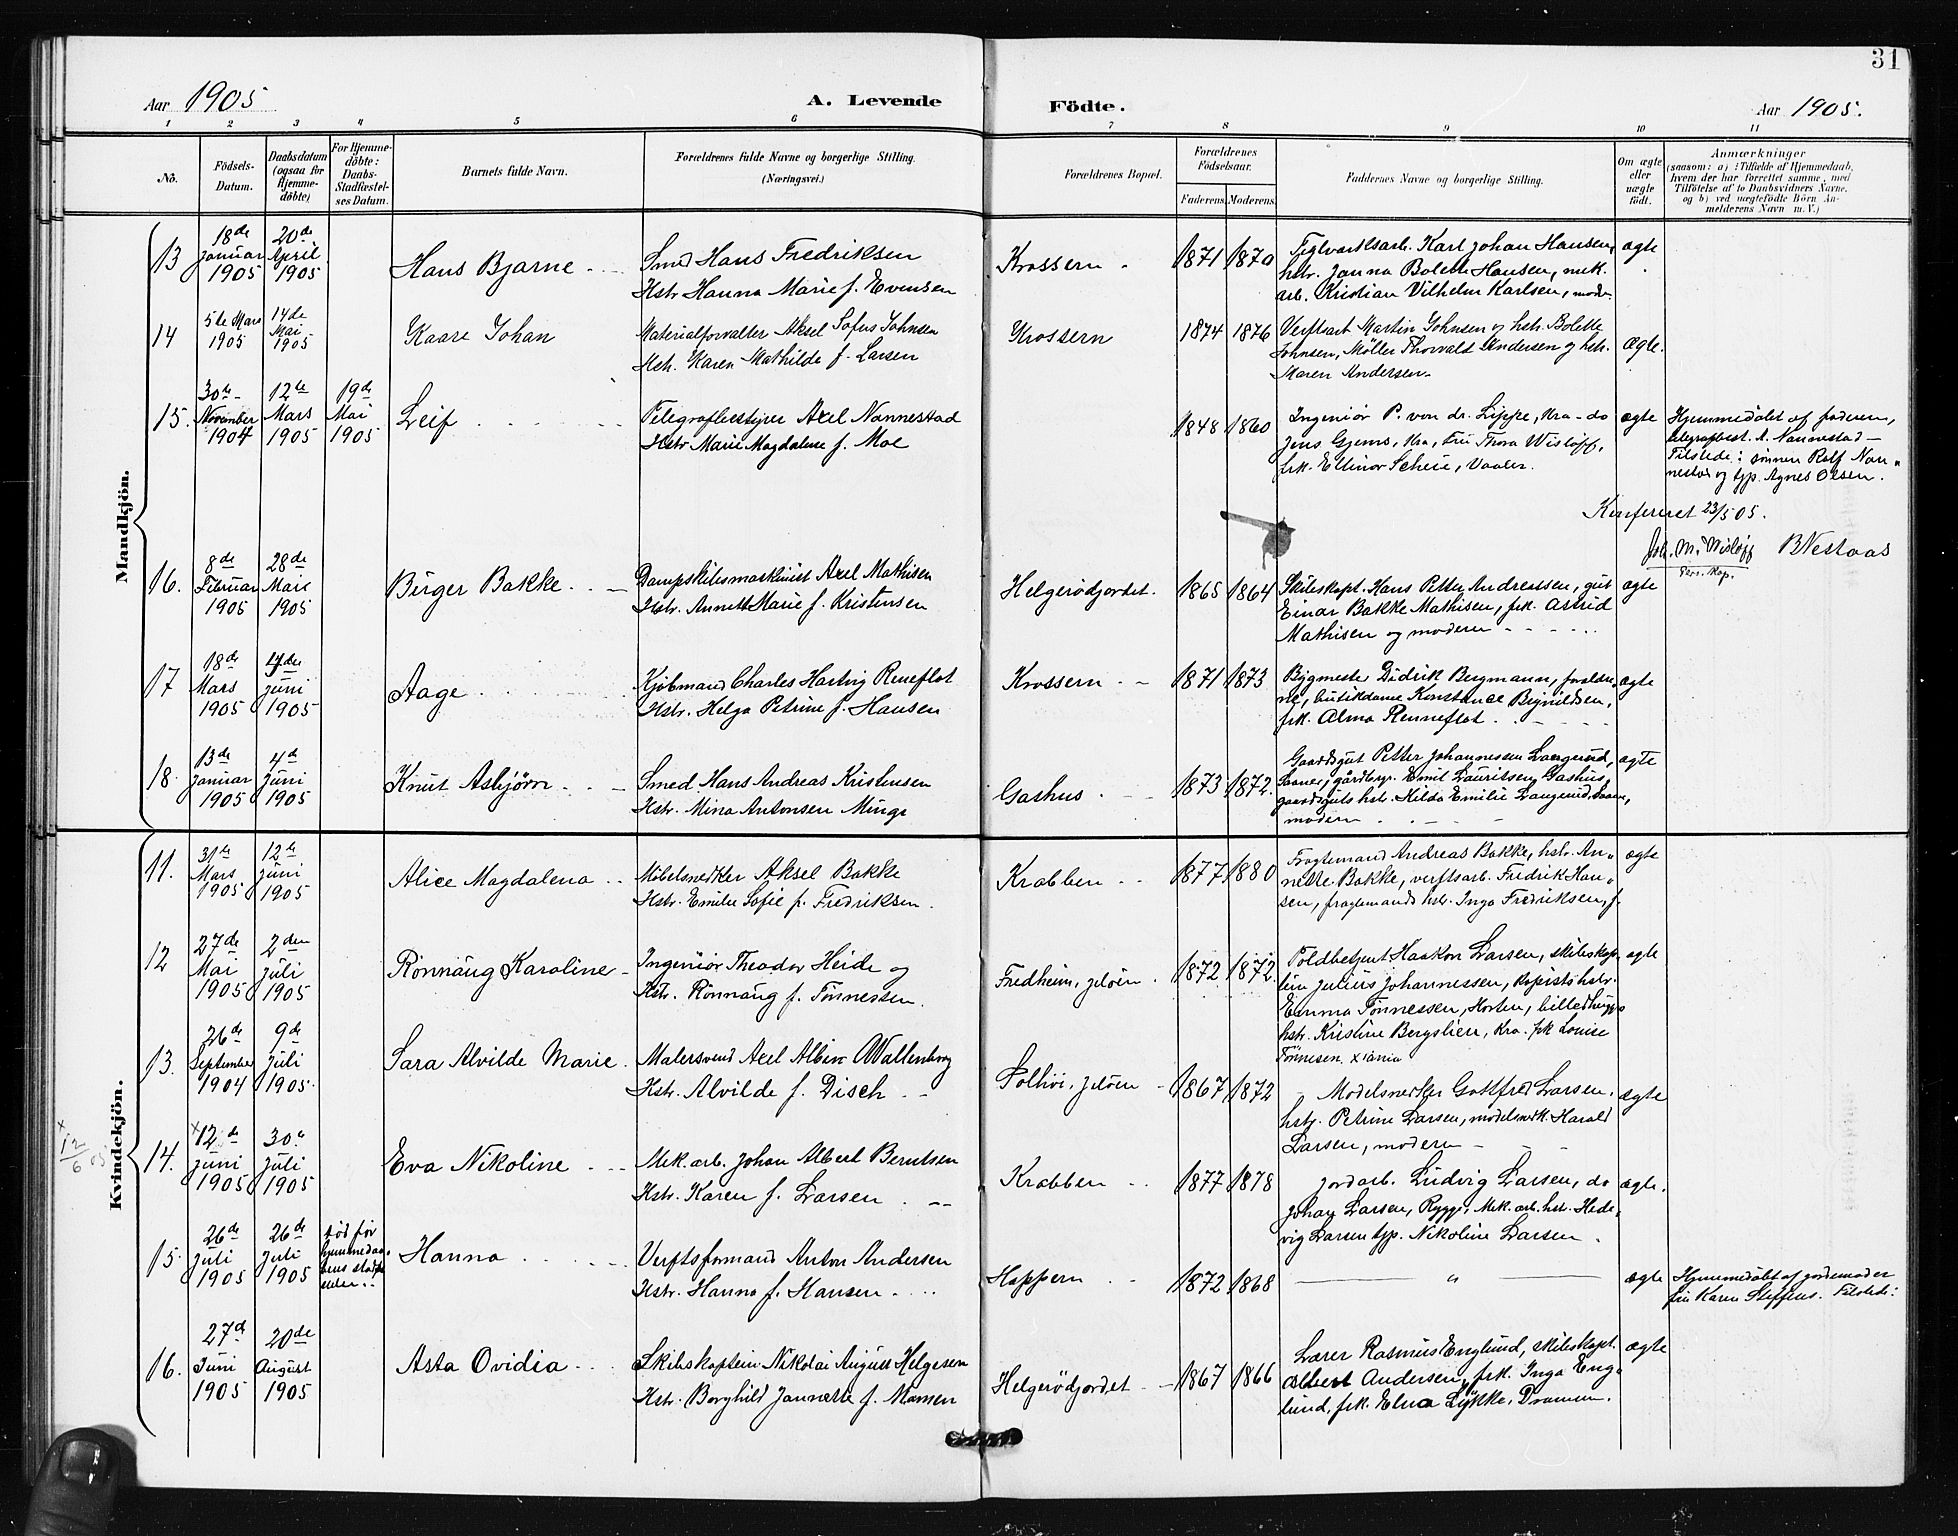 31
Aar 1905
A. Levende Födte.
Aar 1905.
1 2 3 4 5 6 7 8 9 10 11
No.
Födsels-
Datum.
Daabsdatum
(ogsaa for
Hjemme-
döbte)
For Hjemme-
döbte:
Daabs-
Stadfæstel-
ses Datum.
Barnets fulde Navn.
Forældrenes fulde Navne og borgerlige Stilling.
(Næringsvei.)
Forældrenes Bopæl.
Forældrenes
Födselsaar.
Faderens. Moderens.
Faddernes Navne og borgerlige Stilling.
Om ægte
eller
uægte
födt.
Anmærkninger
(saasom: a) i Tilfælde af Hjemmedaab,
hvem der har forrettet samme, med
Tilfötelse af to Daabsvidners Navne,
og b) ved uægtefödte Börn An-
melderens Navn m. V.)
Mandkjön.
13
18de
Januar
1905
20de
April
1905
Hans Bjarne
Smed Hans Fredriksen
Hstr Hanna Marie f. Evensen
Krossern
1871 1870
Teglværksarb. Karl Johan Hansen,
hstr. Janna Bolette Hansen, mek.
arb. Kristian Vilhelm Karlsen, moder
ægte
14
5te Mars
1905
14de
Mai
1905
Kaare Johan
Materialforvalter Aksel Sofus Johnsen
Hstr. Karen Mathilde f. Larsen
Krossern
1874 1876
Verftsarb Martin Johnsen og hstr. Bolette
Johnsen, Møller Thorvald Andersen og hstr.
Maren Andersen
Ægte.
15.
30te
November
1904
12te
Mars
1905
19de
Mai
1905
Leif
Telegrafbestyrer Axel Nannestad
Hstr Marie Magdalene f. Moe
1848 1860
Ingeniør P. von dr. Lippe, Kra - do
Jens Gjems, Kra, Fru Thora Wisløff,
frk. Ellinor Scheie, Vaaler.
ægte
Hjemmedøbt af faderen,
telegrafbest. A. Nannestad
Tilstede: sønnen Rolf Nan-
nestad og tjp. Agnes Olsen.
Konfereret 23/5 05.
Joh. M. Wisløff
Pers. Kap.
B Nestaas
16.
8de
Februar
1905
28de
Mai
1905
Birger Bakke
Dampskibsmaskinist Axel Mathisen
Hstr. Annette Marie f. Kristensen
Helgerødjordet.
1865 1864
Skibskapt. Hans Petter Andreassen, gut
Einar Bakke Mathisen, frk. Astrid
Mathisen og moderen
ægte
17
18de
Mars
1905
Juni
1905
Aage
Kjøbmand Charles Hartvig Reneflot
Hstr. Helga Petrine f. Hansen
Krossern
1871 1873
Bygmester Didrik Bergmann, forældre-
ne, butikdame Konstance
frk. Alma Renneflot
ægte
18.
13de
Januar
1905
4de
Juni
1905
Knut Asbjørn
Smed Hans Andreas Kristensen
Hstr. Mina Antonsen Minge
Gashus
1873 1872.
Gaardsgut Petter Johannessen Langerud,
Saaner, gårdbrgr. Emil Lauritsen, Gashus,
gaardsguts hstr. Hilda Emilie Langerud, Saaner,
modern
ægte
Kvindekjön.
11.
31te
Mars
1905
12te
Juni
1905
Alice Magdalena
Møbelsnedker Aksel Bakke
Hstr. Emilie Sofie f. Fredriksen.
Krabben
1877 1880
Fragtemand Andreas Bakke, hstr. An-
nette Bakke, verftsarb. Fredrik Han-
sen, fragtemands hstr. Inga Fredriksen, f.
ægte
12
27de
Mai
1905
2den
Juli
1905
Rönnaug Karoline
Ingeniør Theodor Heide og
Hstr. Rönnaug f. Tønnessen.
Fredheim, Jeløen
1872 1872.
Toldbetjent Haakon Larsen, skibskap-
tein Julius Johannessen, kopists hstr.
Emma Tønnessen, Horten, billedhugger
hstr. Kristine Bergslien, Kra. frk Louise
Tønnesen
ægte
13.
26de
September
1904
9de
Juli
1905.
Sara Alvilde Marie.
Malersvend Axel Albin Wallenborg
Hstr. Alvilde f. Disch
Solhøi, Jeløen
1867 1872
Modelsnedker Gottfred Larsen,
hstr. Petrine Larsen, modelsnedk. Harald
Larsen, modern
ægte
x 12/6 05
14.
x 12de
Juni
1905
30te
Juli
1905
Eva Nikoline
Mek. arb. Johan Albert Berntsen
Hstr. Karen f. Larsen
Krabben
1877 1878
Jordarb. Ludvig Larsen, do
Johan Larsen, Rygge, Mek. arb. hstr. Hede-
vig Larsen tjp. Nikoline Larsen.
ægte.
15.
26de
Juli
1905
26de
Juli
1905
død før
hjemmedaa-
bens stadfæ
Hanna
Verftsformand Anton Andersen
Hstr. Hanna f. Hansen
Hoppern
1872 1868
— " —
ægte
Hjemmedøbt af jordemoder
fru Karen Steffens. Tilstede:
16.
27de
Juni
1905
20de
August
1905
Asta Ovidia
Skibskaptein Nikolai August Helgesen
Hstr. Borghild Jannette f. Mamen
Helgerødjordet
1867 1866
Lærer Rasmus Englund, skibskapt.
Albert Andersen, frk. Inga Eng-
lund, frk. Elna Lykke, Drammen.
ægte